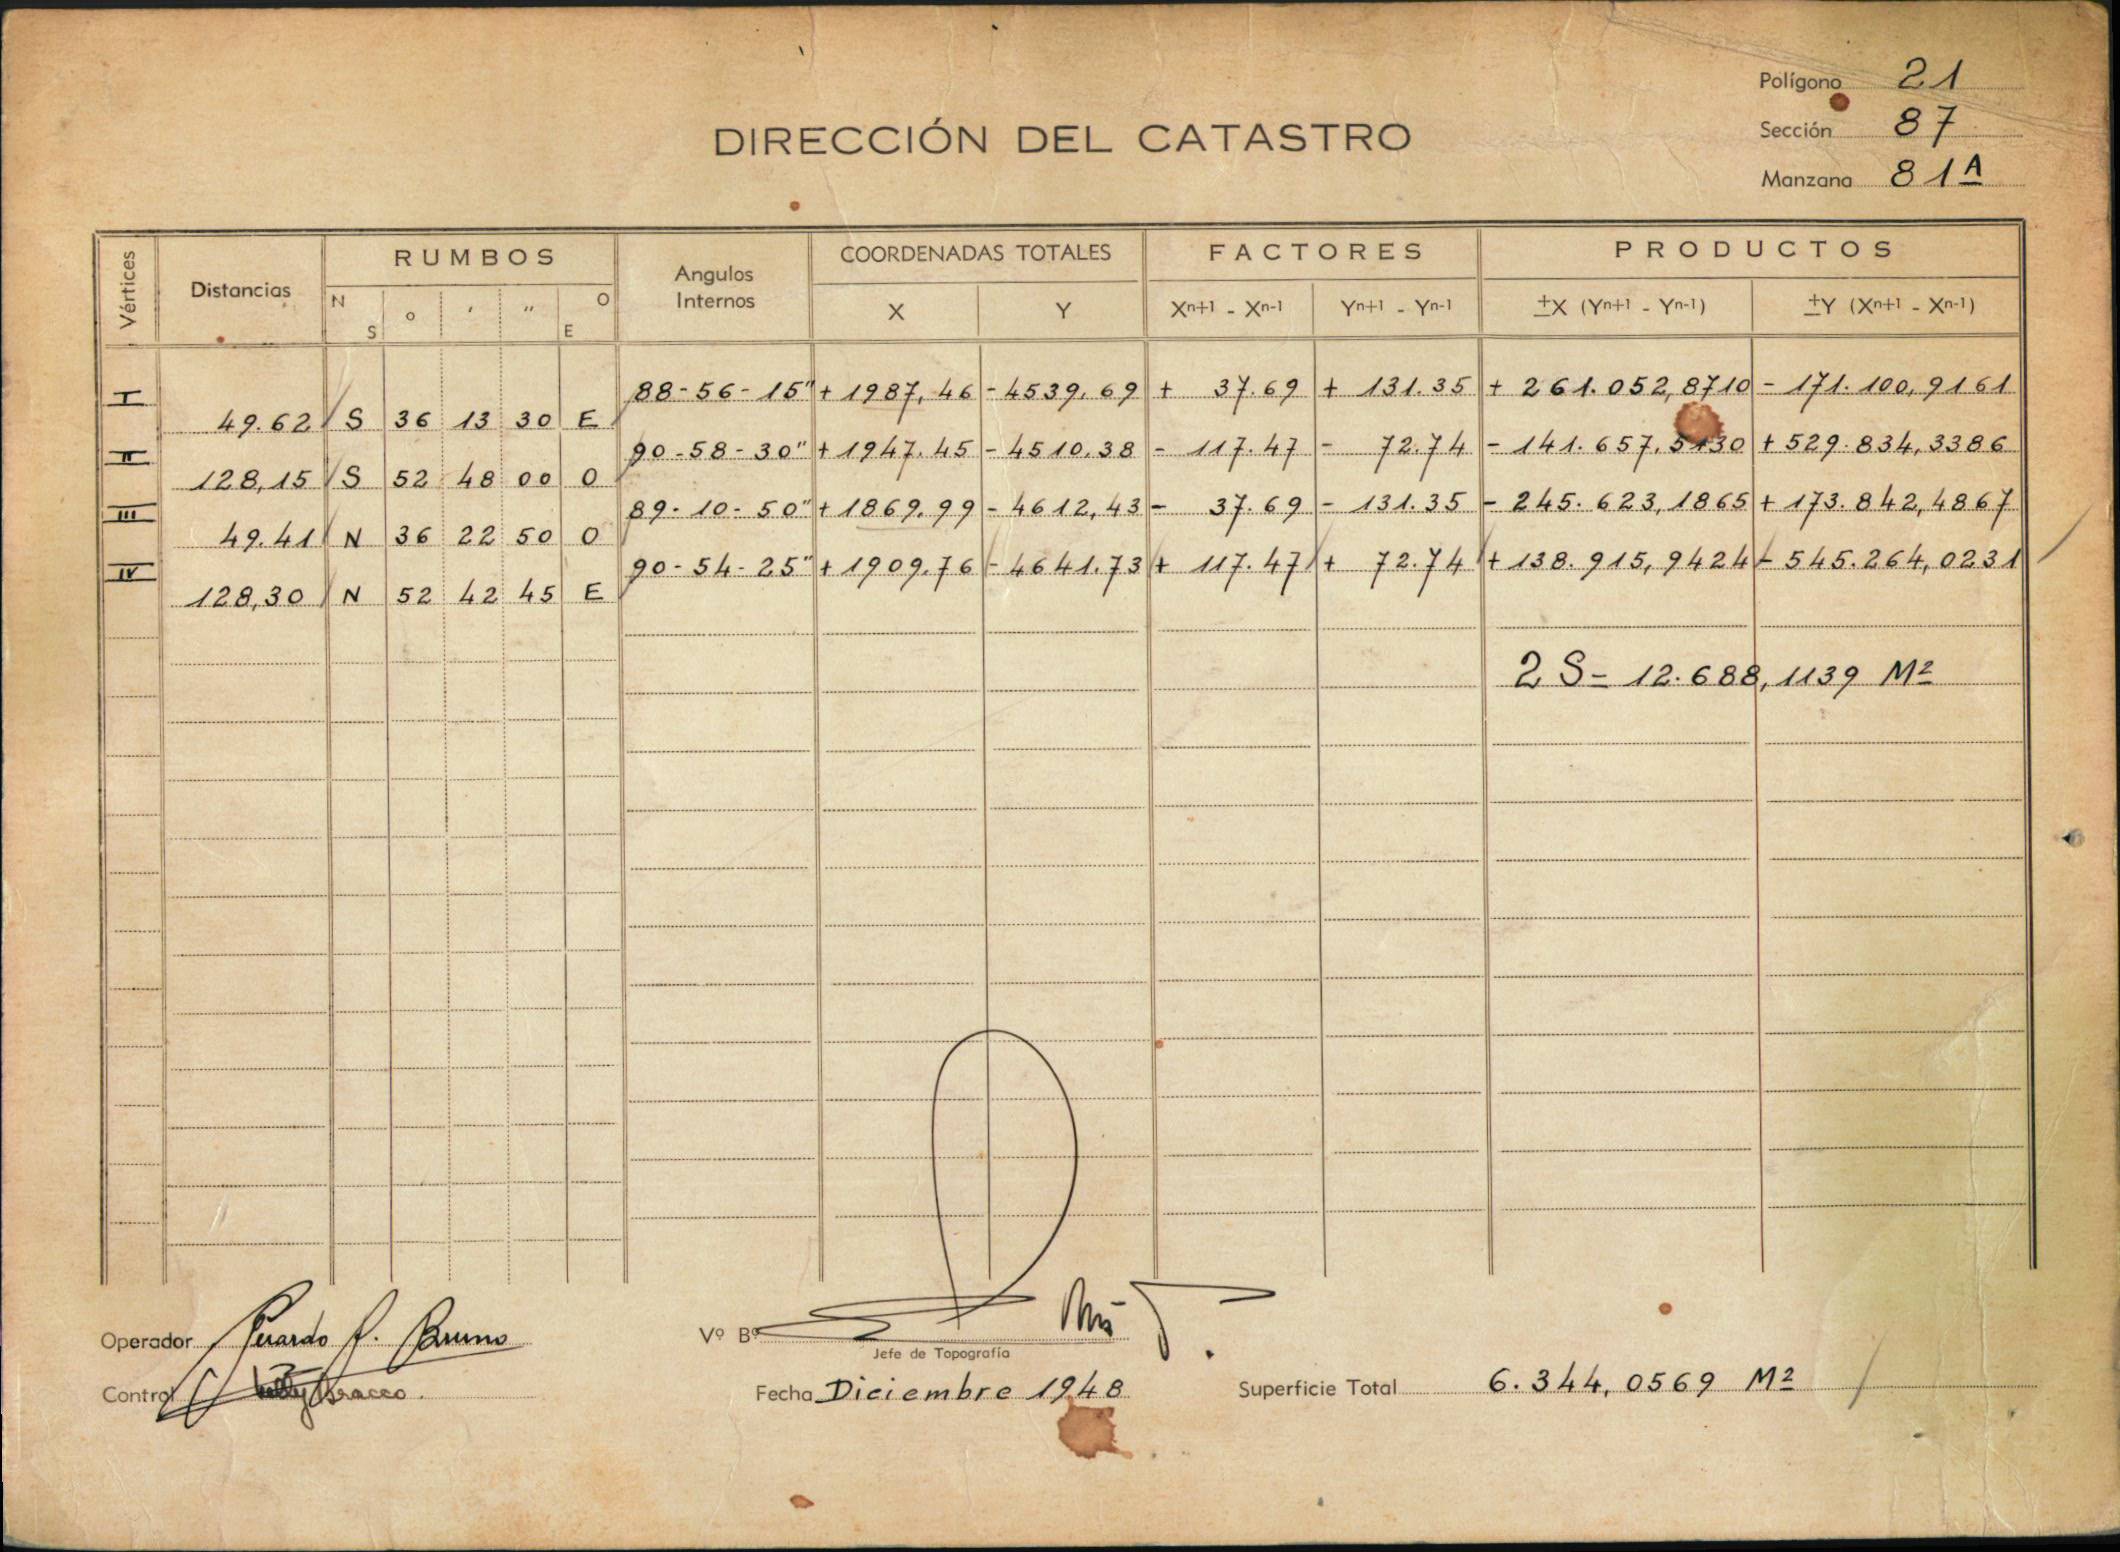 Polígono 21
DIRECCIÓN DEL CATASTRO
Sección 87
Manzana 81A
Vértices
Distancias
RUMBOS
N S ° ' " O E
Angulos Internos
COORDENADAS TOTALES
X Y
FACTORES
Xn+1 - Xn-1 Yn+1 - Yn-1
PRODUCTOS
±X (Yn+1 - Yn-1) ±Y (Xn+1 - Xn-1)
I 88-56-15" + 1987,46 - 4539.69 + 37.69 + 131.35 + 261.052,8710 - 171.100,9161
49.62 S 36 13 30 E
II 90-58-30" + 1947.45 - 4510.38 - 117.47 - 72.74 - 141.657,5130 + 529.834,3386
128,15 S 52 48 00 O
III 89-10-50" + 1869.99 - 4612,43 - 37.69 - 131.35 - 245.623,1865 + 173.842,4867
49.41 N 36 22 50 O
IV 90-54-25" + 1909.76 - 4641.73 + 117.47 + 72.74 + 138.915,9424 - 545.264,0231
128,30 N 52 42 45 E
2 S = 12.688,1139 M2
Operador Gerardo A. Bruno
Vº Bº
Jefe de Topografía
Control Bracco.
Fecha Diciembre 1948
Superficie Total 6.344,0569 M2